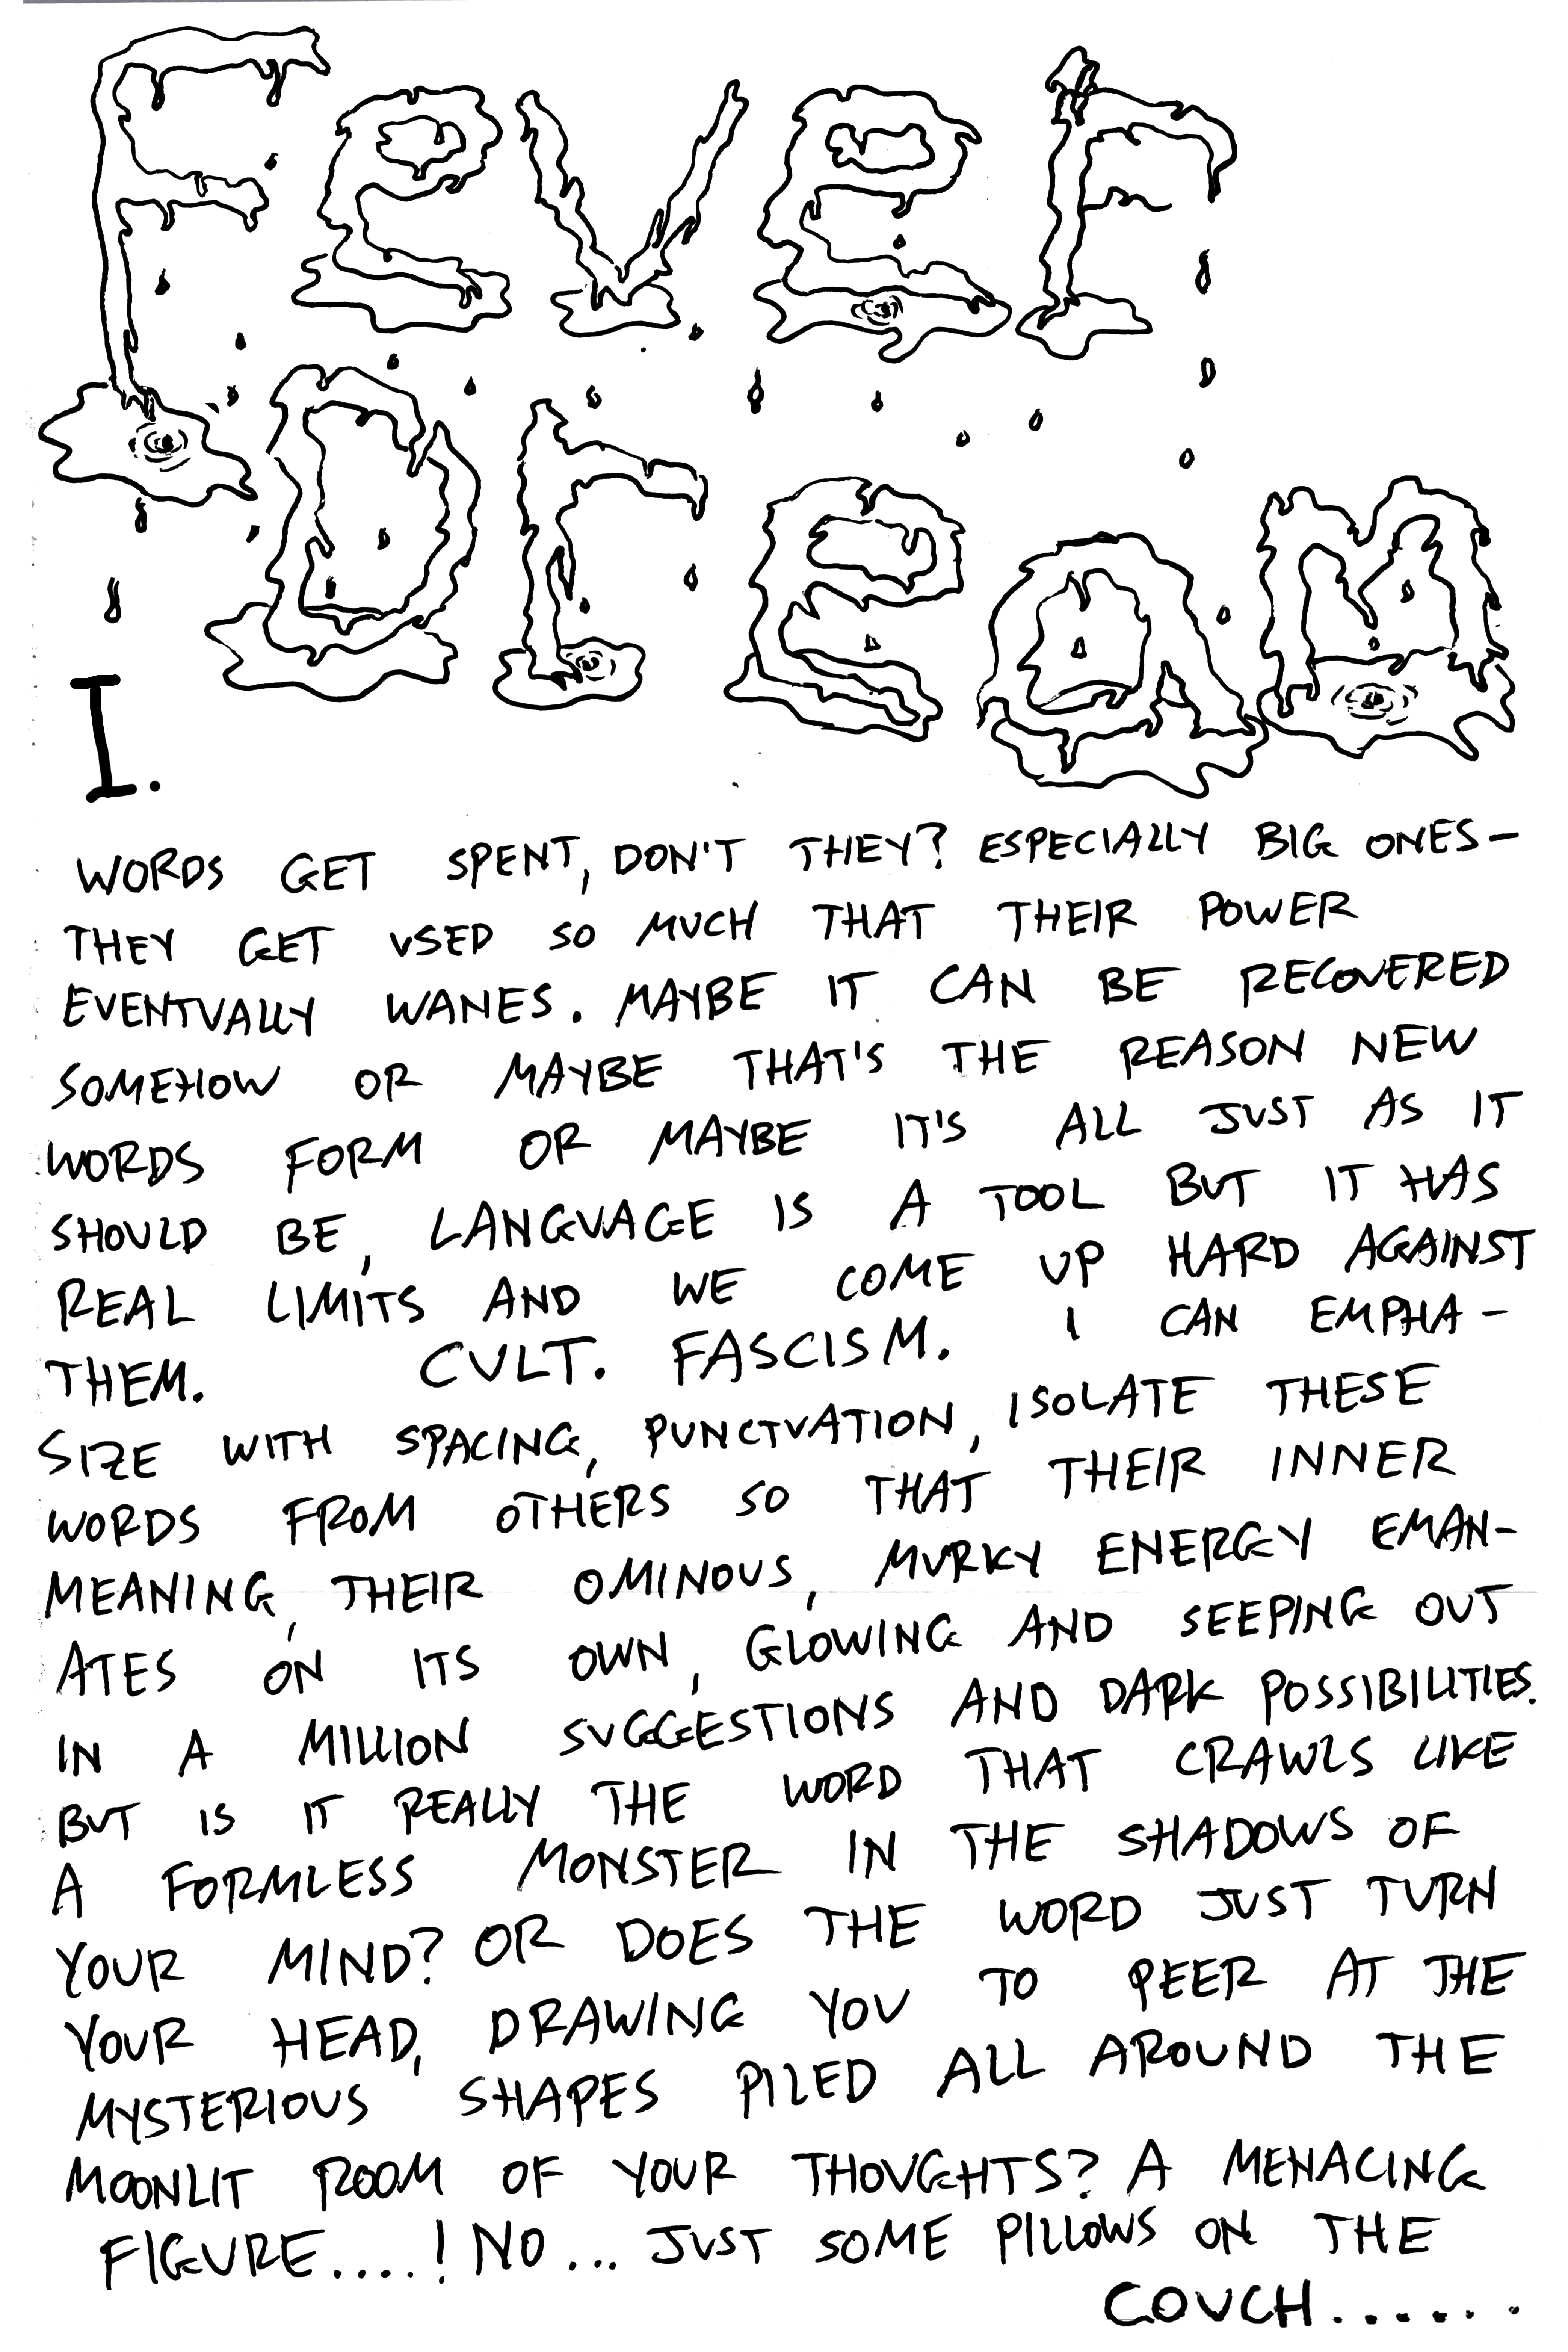 Fever
Dream
I.
WORDS GET SPENT, DON'T THEY? ESPECIALLY BIG ONES-
THEY GET USED SO MUCH THAT THEIR POWER
EVENTUALLY WANES. MAYBE IT CAN BE RECOVERED
SOMEHOW OR MAYBE THAT'S THE REASON NEW
WORDS FORM OR MAYBE IT'S ALL JUST AS IT
SHOULD BE, LANGUAGE IS A TOOL BUT IT HAS
REAL LIMITS AND WE COME UP HARD AGAINST
THEM. CULT. FASCISM. I CAN EMPHA-
SIZE WITH SPACING, PUNCTUATION, ISOLATE THESE
WORDS FROM OTHERS SO THAT THEIR INNER
MEANING, THEIR OMINOUS, MURKY ENERGY EMAN-
ATES ON ITS OWN, GLOWING AND SEEPING OUT
IN A MILLION SUGGESTIONS AND DARK POSSIBILITIES.
BUT IS IT REALLY THE WORD THAT CRAWLS LIKE
A FORMLESS MONSTER IN THE SHADOWS OF
YOUR MIND? OR DOES THE WORD JUST TURN
YOUR HEAD, DRAWING YOU TO PEER AT THE
MYSTERIOUS SHAPES PILED ALL AROUND THE
MOONLIT ROOM OF YOUR THOUGHTS? A MENACING
FIGURE....! NO... JUST SOME PILLOWS ON THE
COUCH......